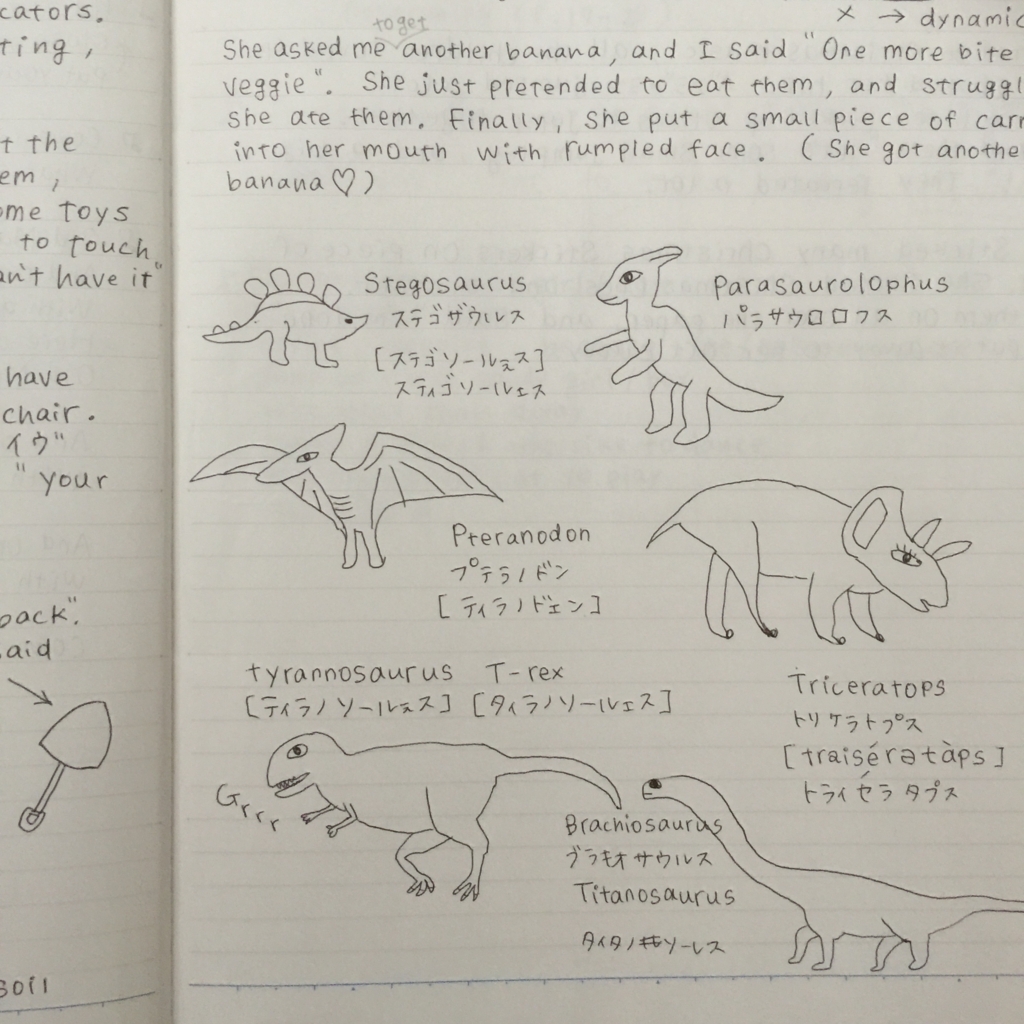 cators.
ting,
t the
em,
ome toys
to touch"
an't have it"
have
chair.
イヴ"
"your
back".
aid
soil
× → dynamic
to get
She asked me another banana, and I said "One more bite
veggie". She just pretended to eat them, and struggl
she ate them. Finally, she put a small piece of carr
into her mouth with rumpled face. (She got anothe
banana♡)
Stegosaurus
ステゴザウルス
[ステゴソールェス]
スティゴソールェス
Parasaurolophus
パラサウロロフス
Pteranodon
プテラノドン
[ティラノドェン]
tyrannosaurus T-rex
[ティラノソールェス] [タイラノソールェス]
Triceratops
トリケラトプス
[traisérətàps]
トライセラタプス
Grrrr
Brachiosaurus
ブラキオサウルス
Titanosaurus
タイタノソーレス